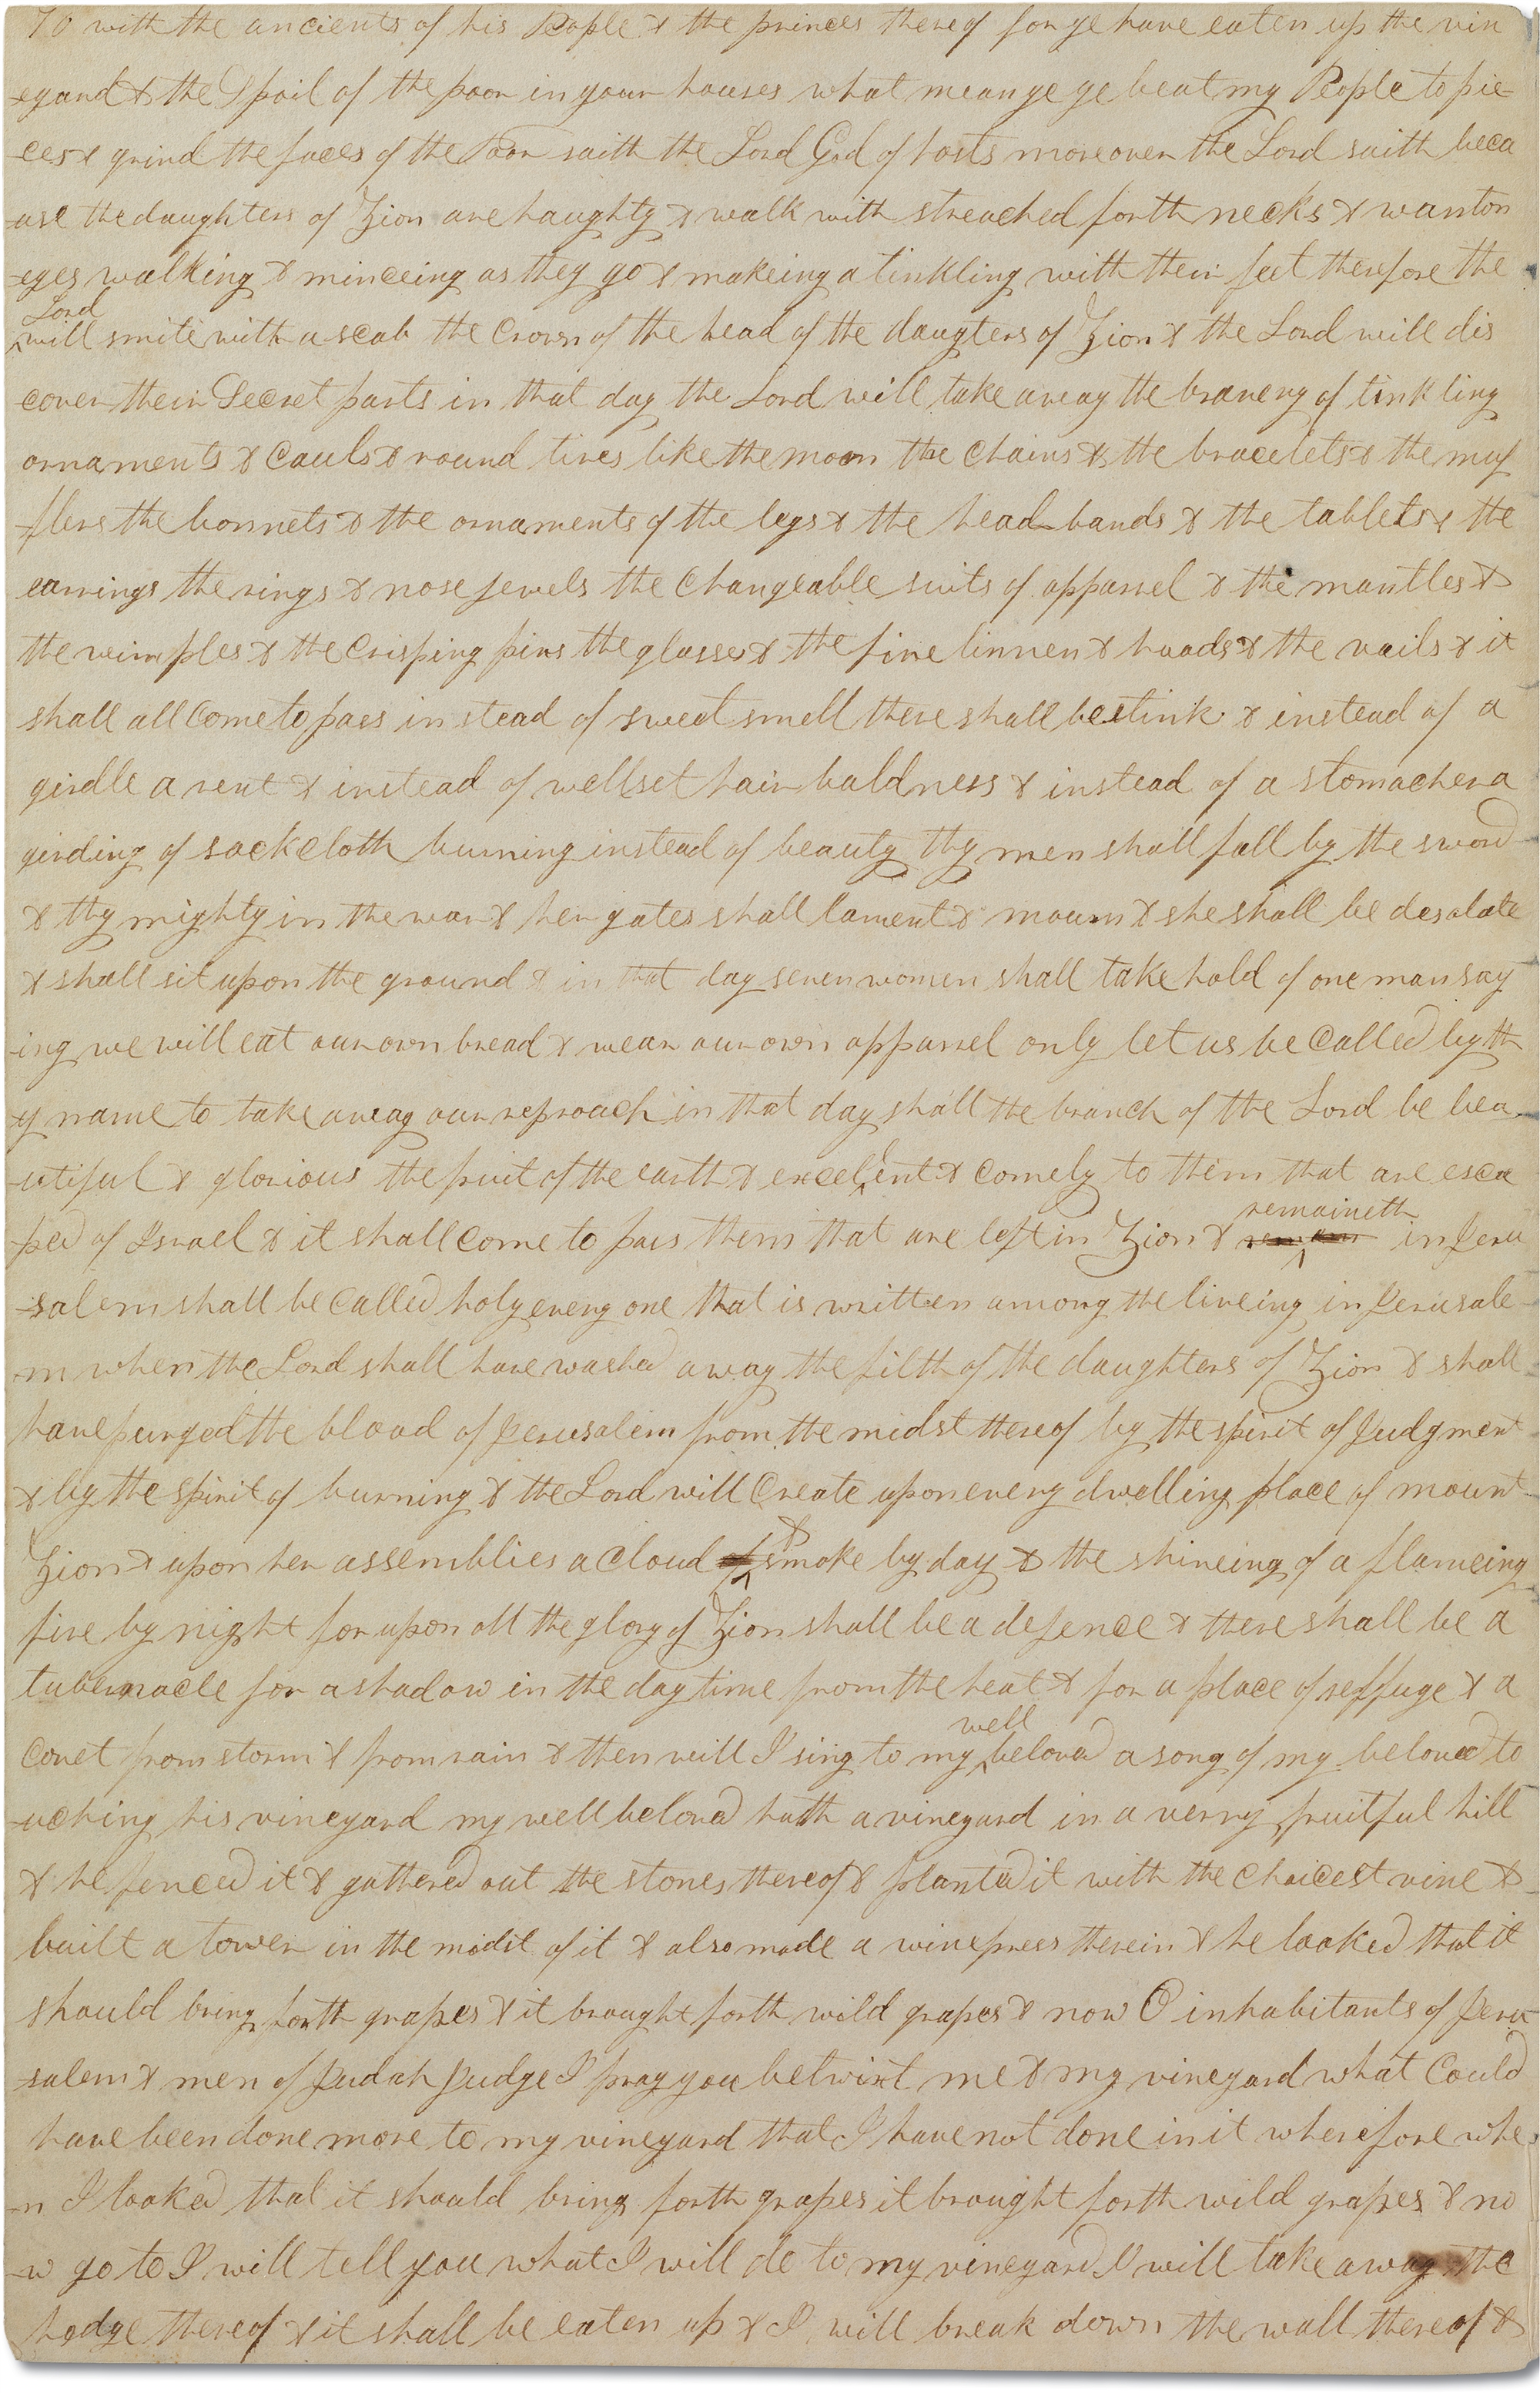 To with the ancients of his People & the princes thereof for ye have eaten up the vin
-eyard & the Spoil of the poor in your houses what mean ye ye beat my People to pie
-ces & grind the faces of the Poor saith the Lord God of hosts moreover the Lord saith beca
-use the daughters of Zion are haughty & walk with streached forth necks & wanton
-eyes walking & minceing as they go & makeing a tinkling with their feet therefore the
Lord
^will smite with a scab the Crown of the head of the daugters of Zion & the Lord will dis
cover their Secret parts in that day the Lord will take away the bravery of tinkling
ornaments & Cauls & round tires like the moon the Chains & the bracelets & the muf
-flers the bonnets & the ornaments of the legs & the head bands & the tablets & the
earrings the rings & nose jewels the Changeable suits of apparrel & the mantles &
the wimples & the Crisping pins the glasses & the fine linnen & hoods & the vails & it
shall all Come to pass instead of sweet smell there shall be stink & instead of a
girdle a rent & instead of well set hair baldness & instead of a stomacher a
girding of sackcloth burning instead of beauty thy men shall fall by the sword
& thy mighty in the war & her gates shall lament & mourn & she shall be desolate
& shall sit upon the ground & in that day seven women shall take hold of one man say
-ing we will eat our own bread & wear our own apparrel only let us be Called by th
y name to take away our reproach in that day shall the branch of the Lord be bea-
-utiful & glorious the fruit of the earth & excel^lent & Comely to them that are esca
-ped of Israel & it shall Come to pass them that are left in Zion & remain in Jeru
remaineth
-salem shall be Called holy every one that is written among the liveing in Jerusale
-m when the Lord shall have washed away the filth of the daughters of Zion & shall
have purged the blood of Jerusalem from the midst thereof by the spirit of Judgment
& by the spirit of burning & the Lord will Create upon every dwelling place of mount
Zion & upon her assemblies a Cloud of ^& smoke by day & the shineing of a flameing
fire by night for upon all the glory of Zion shall be a defence & there shall be a
tabernacle for a shadow in the daytime from the heat & for a place of reffuge & a
well
Covet from storm & from rain & then will I sing to my ^beloved a song of my beloved to
-uching his vineyard my well beloved hath a vineyard in a verry fruitful hill
& he fenced it & gathered out the stones thereof & planted it with the Choicest vine &
built a tower in the midst of it & also made a winepress therein & he looked that it
should bring forth grapes & it brought forth wild grapes & now O inhabitants of Jeru
-salem & men of Judah Judge I pray you betwixt me & my vineyard what Could
have been done more to my vineyard that I have not done in it wherefore whe
-n I looked that it should bring forth grapes it brought forth wild grapes & no
-w go to I will tell you what I will do to my vineyard I will take away the
hedge thereof & it shall be eaten up & I will break down the wall thereof &